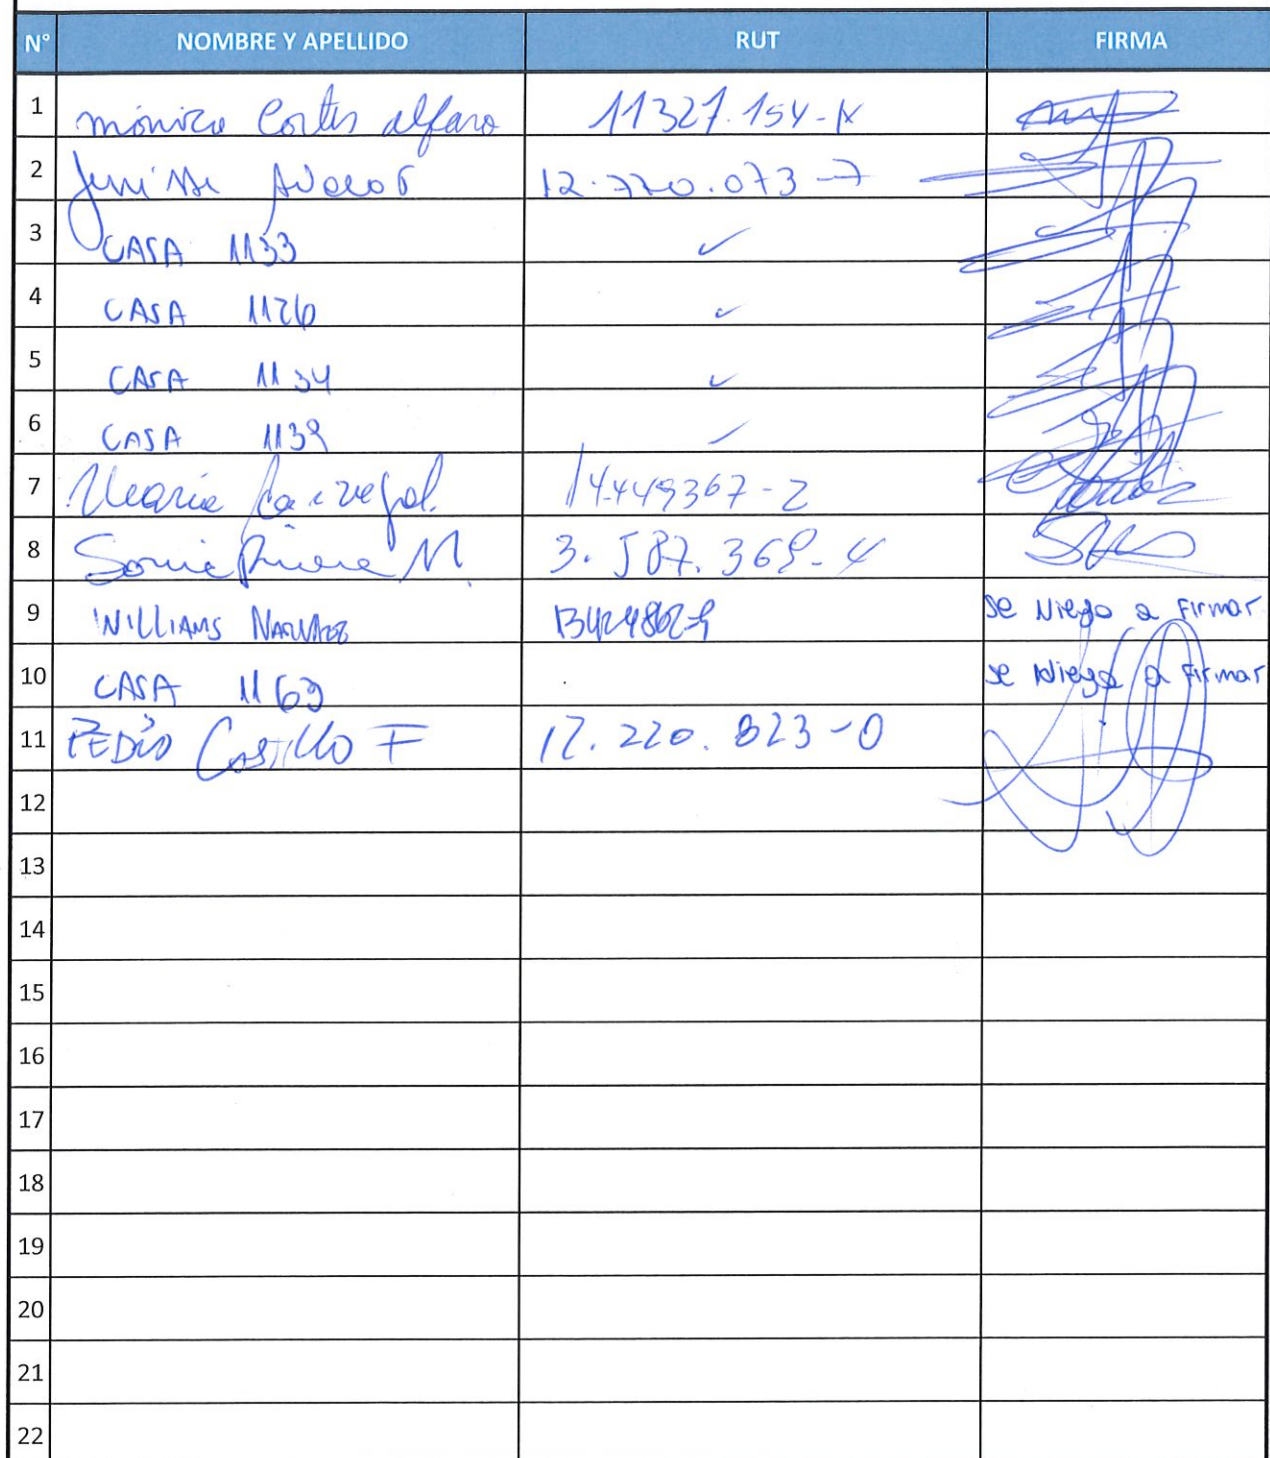 N° NOMBRE Y APELLIDO RUT FIRMA
1 mónica Cortes alfaro 11327.154-K
2 12.770.073-7
3 CASA 1133 ✓
4 CASA 1126 ✓
5 CASA 1134 ✓
6 CASA 1139 ✓
7 Maria 14.449367-2
8 Sonia Rivera M. 3.587.369-4
9 WILLIAMS se Niego a Firmar
10 CASA 1169 se Niego a Firmar
11 PEDRO CASTILLO F 17.220.823-0
12
13
14
15
16
17
18
19
20
21
22